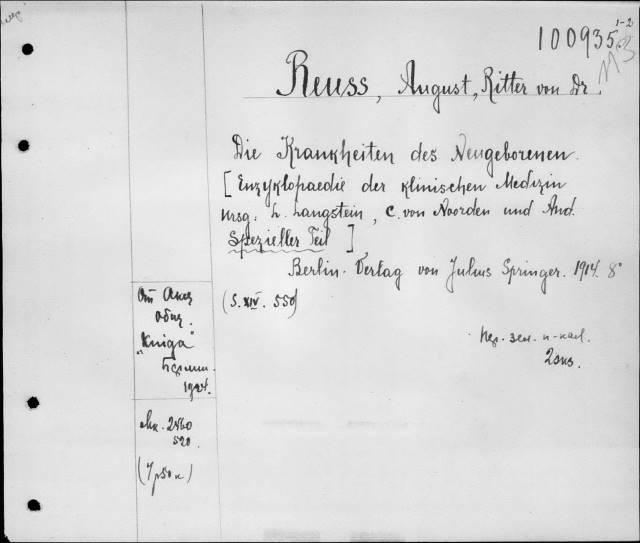 1-2
100935
Reuss, August, Ritter von Dr.
Die Krankheiten des Neugeborenen.
[Enzyklopaedie der klinischen Medizin
Hrsg: L. Langstein, C. von Noorden und And.
Spezieller Teil]
Berlin. Verlag von Julius Springer. 1914. 8°
(S. XIV. 550)
От Акц
Общ.
"Kniga"
Берлин.
1924.
2 экз.
2460
520.